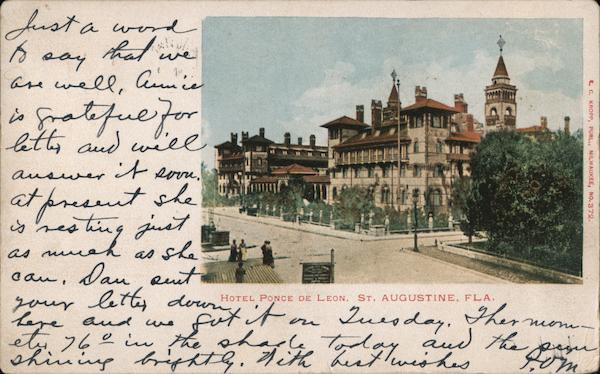 Just a word
to say that we
are well, Annie
is grateful for
letter and will
answer it soon,
at present she
is resting just
as much as she
can. Dan sent
your letter down
here and we got it on Tuesday. Thermom-
eter 76° in the shade today and the sun
shining brightly. With best wishes P.O.M.
HOTEL PONCE DE LEON, ST. AUGUSTINE, FLA.
E. C. KROPP, PUBL., MILWAUKEE, NO. 379.